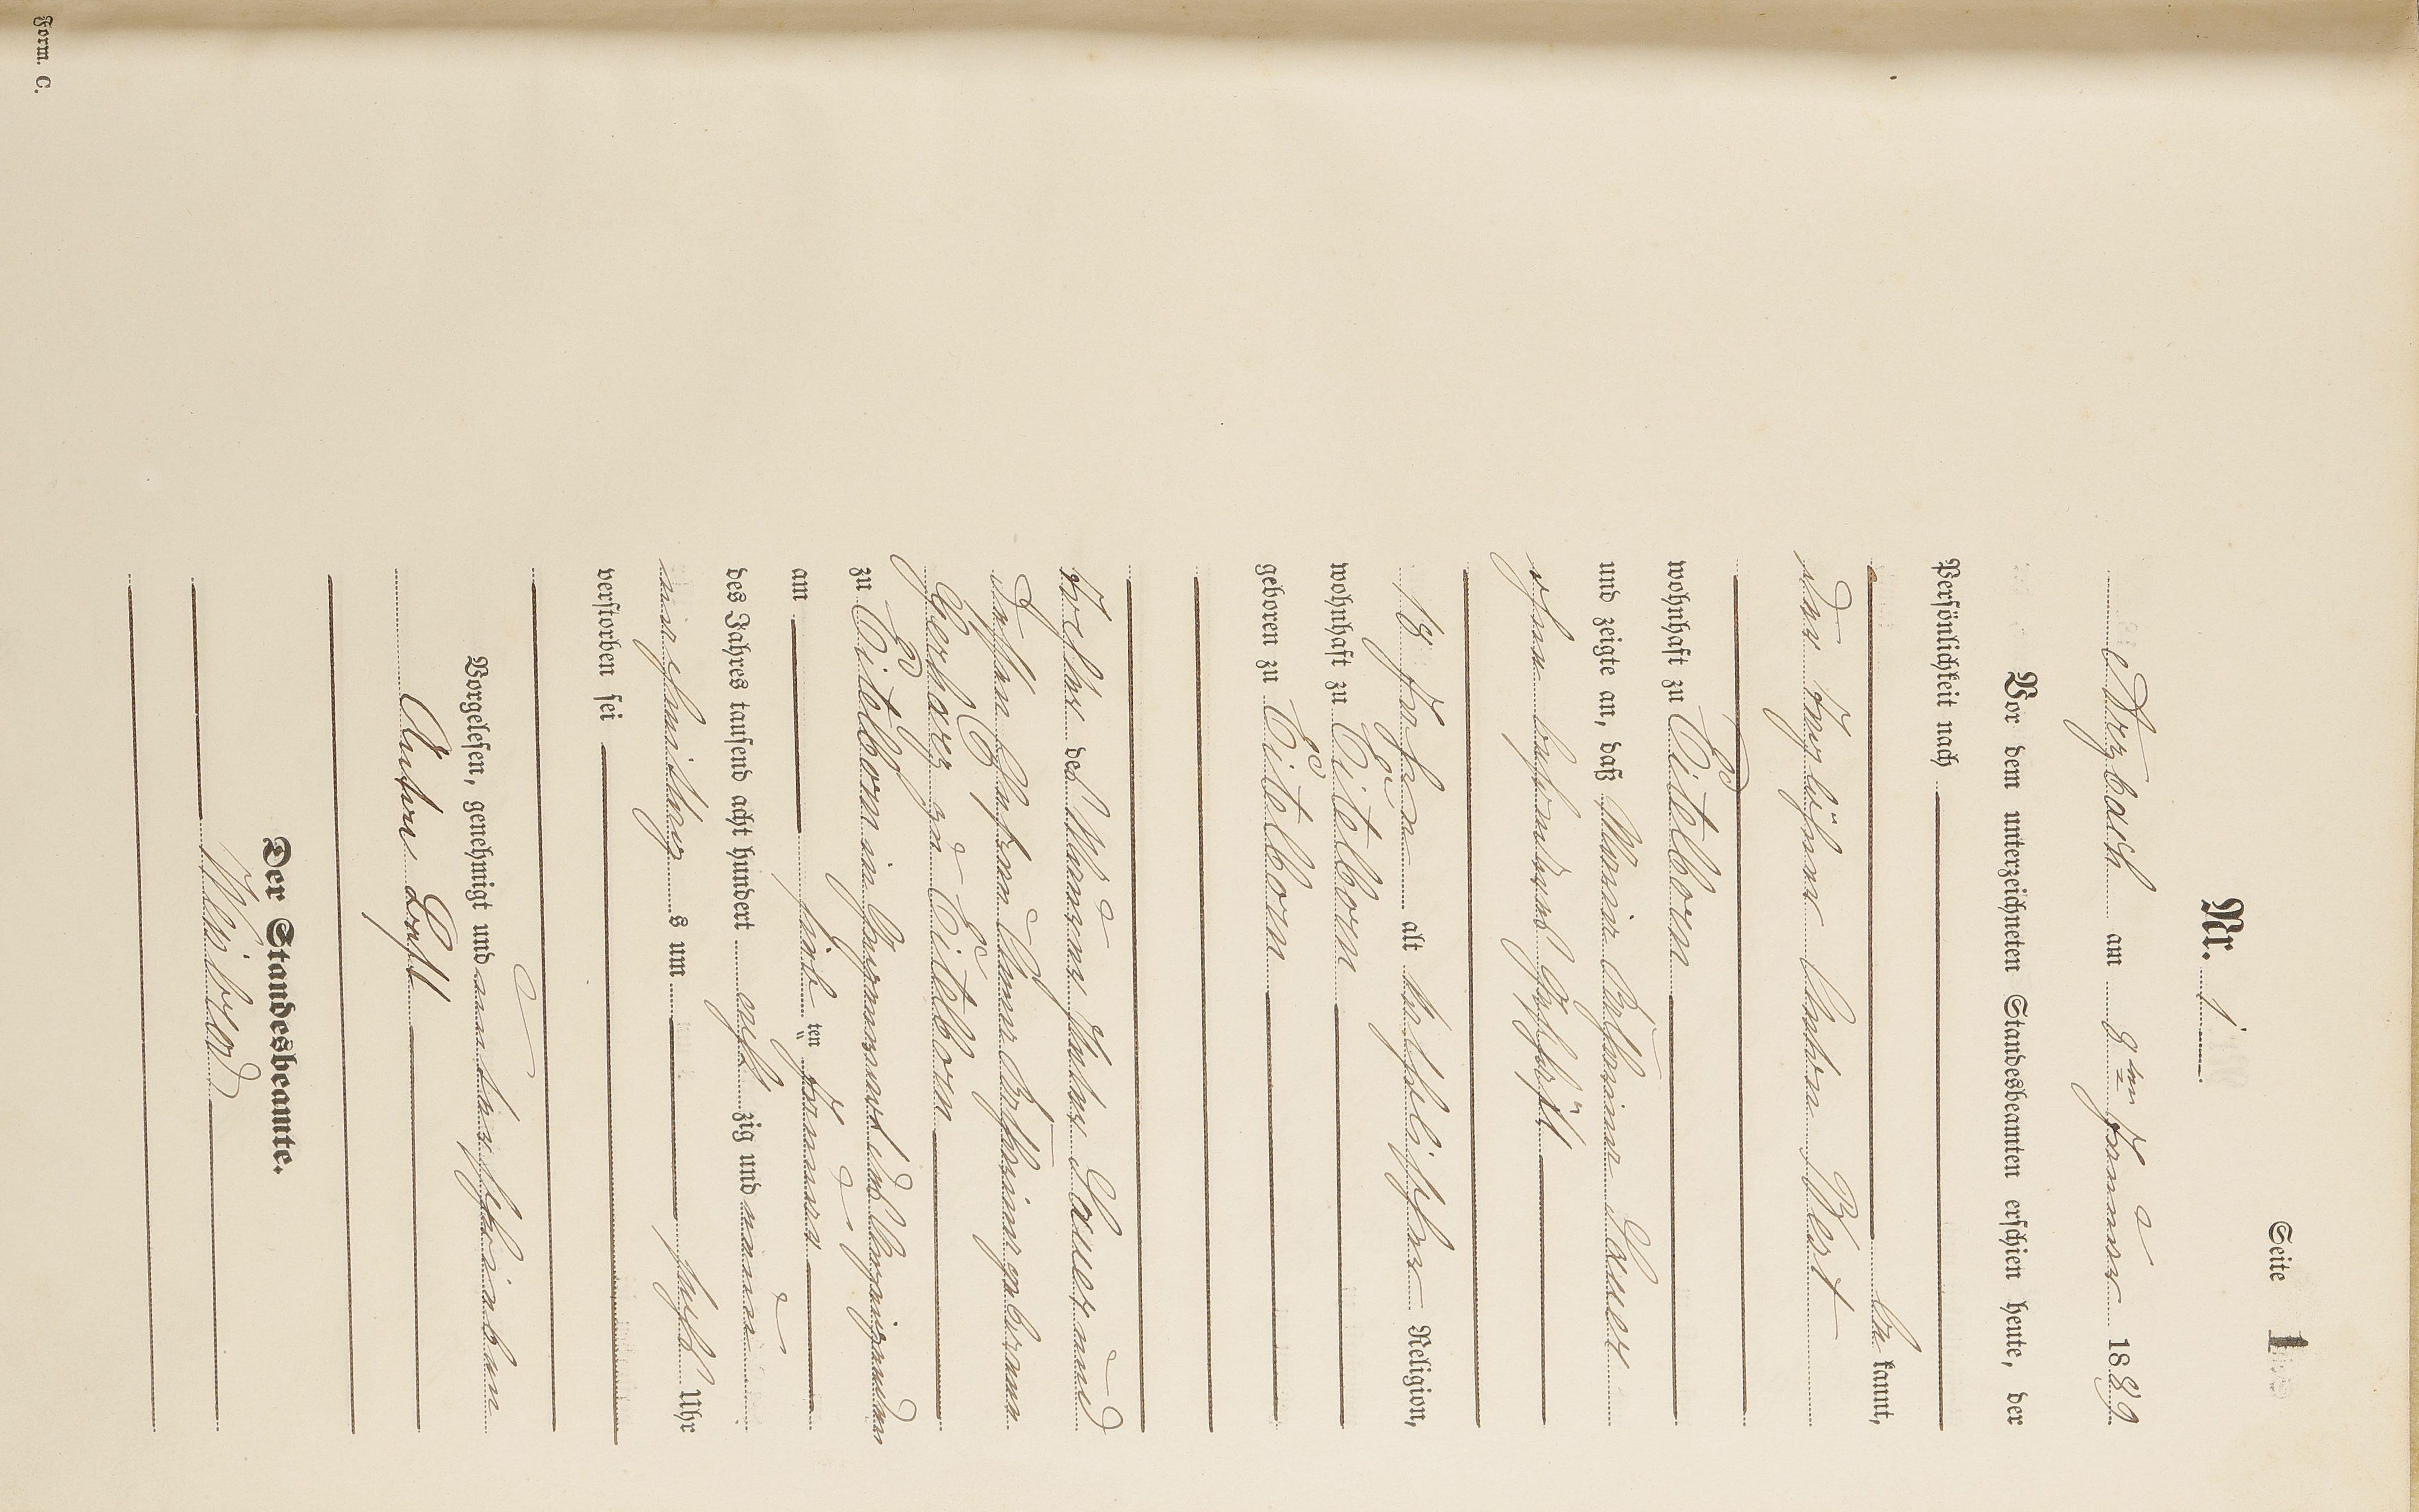 Seite 1
Nr. 1
Arzbach am 8ten Januar 1889
Vor dem unterzeichneten Standesbeamten erschien heute, der
Persönlichkeit nach
be kannt,
der Tagelöhner Anton
wohnhaft zu Eitelborn
und zeigte an, daß Maria Catharina Sauer
ohne besonderes Geschäft
18 Jahre alt katholischer Religion,
wohnhaft zu Eitelborn
geboren zu Eitelborn
Tochter des Peter Sauer und
dessen Ehefrau Anna Catharina geborenen
Gerharz zu Eitelborn
zu Eitelborn in Gegenwart des Anzeigenden
am fünften Januar
des Jahres tausend acht hundert achtzig und neun
Uhr
verstorben sei
Vorgelesen, genehmigt und unterschrieben
Anton
Der Standesbeamte.
Form. C.